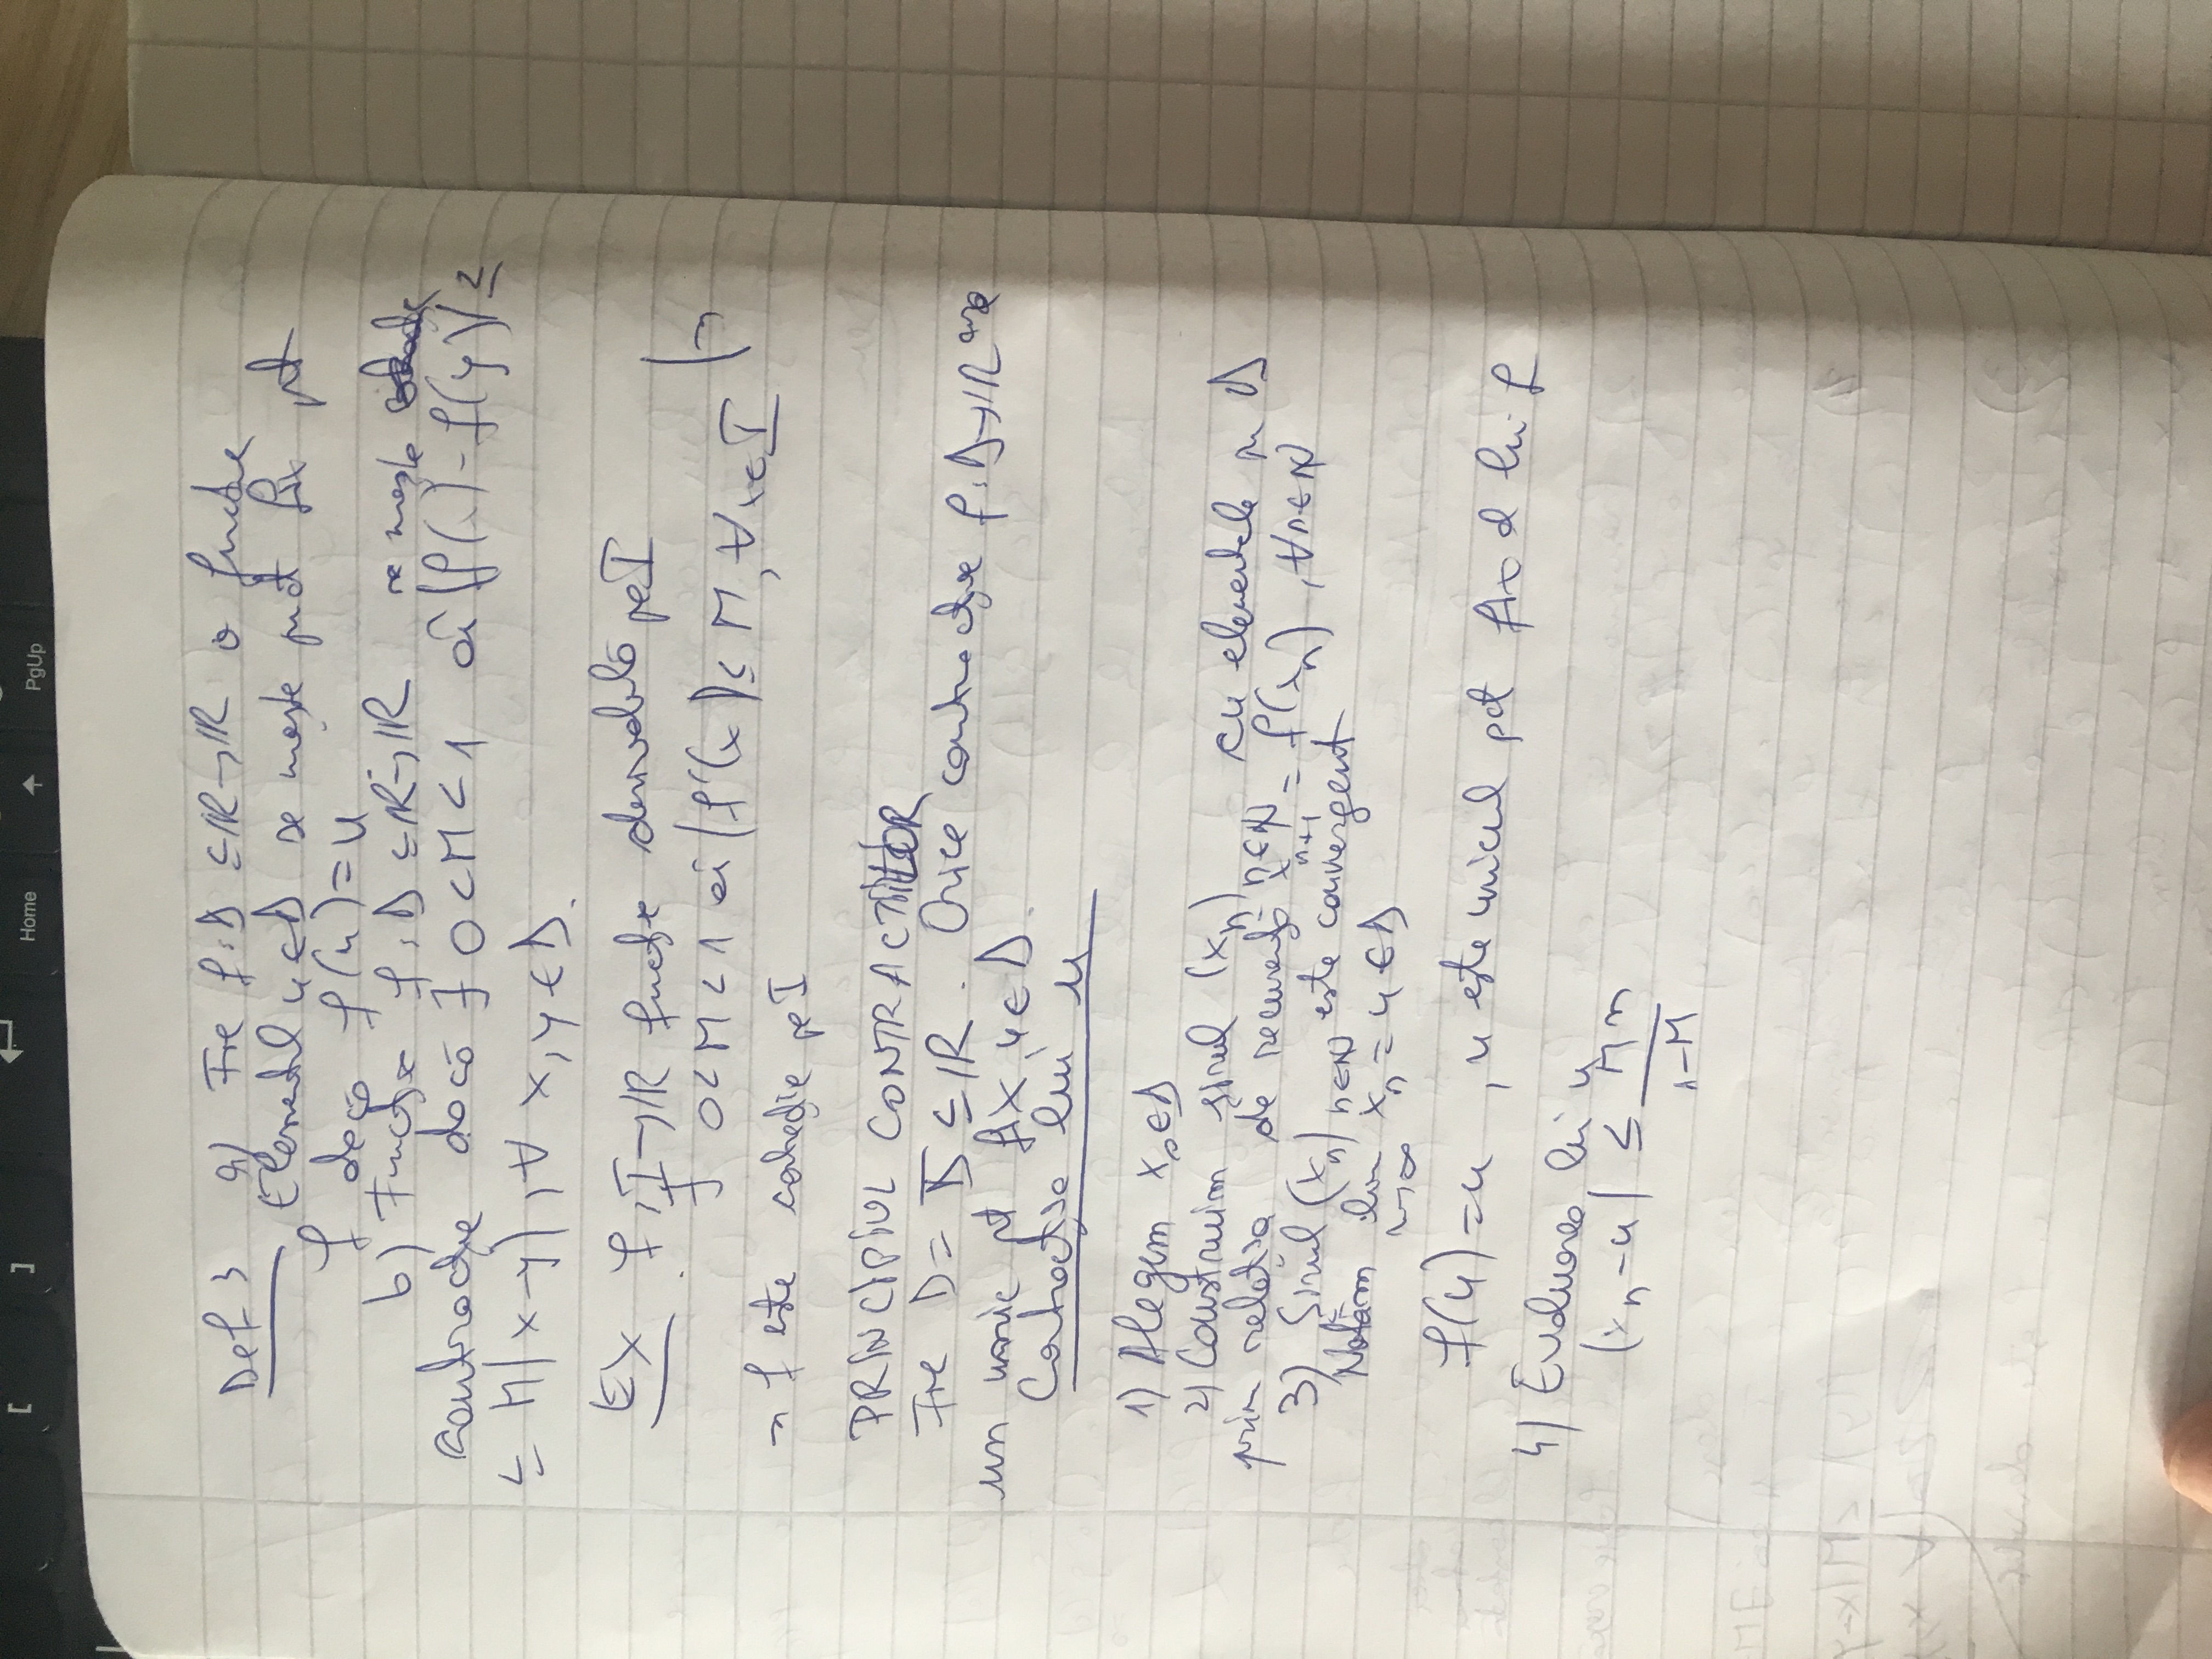 [ ] Home PgUp
Def 3 a) Fie f: D ⊆ ℝ → ℝ o funcție
Elementul u ∈ D se nmește pnct fix pt
f dacă f(u) = u
b) Funcția f: D ⊆ ℝ → ℝ se nmește
contracție dacă ∃ 0 < M < 1 aî |f(x) - f(y)| ≤
≤ M|x-y|, ∀ x, y ∈ D.
Ex. f: I → ℝ funcție derivabilă pe I
∃ 0 < M < 1 aî |f'(x)| ≤ M, ∀ x ∈ I | ⇒
⇒ f este contracție pe I
PRINCIPIUL CONTRACȚIILOR
Fie D = D̅ ⊆ ℝ. Orice contracție f: D → ℝ are
un unic pt fix u ∈ D.
lui u
1) Alegem x₀ ∈ D
2) Construim șirul (xₙ)ₙ∈ℕ cu elementele în D
prin relația de recurență xₙ₊₁ = f(xₙ), ∀ n ∈ ℕ
3) Șirul (xₙ)ₙ∈ℕ este convergent
Notăm lim n→∞ xₙ = u ∈ D
f(u) = u, u este unicul pct fix al lui f
4) Evaluarea lui u
|xₙ - u| ≤ Mⁿ / (1-M)